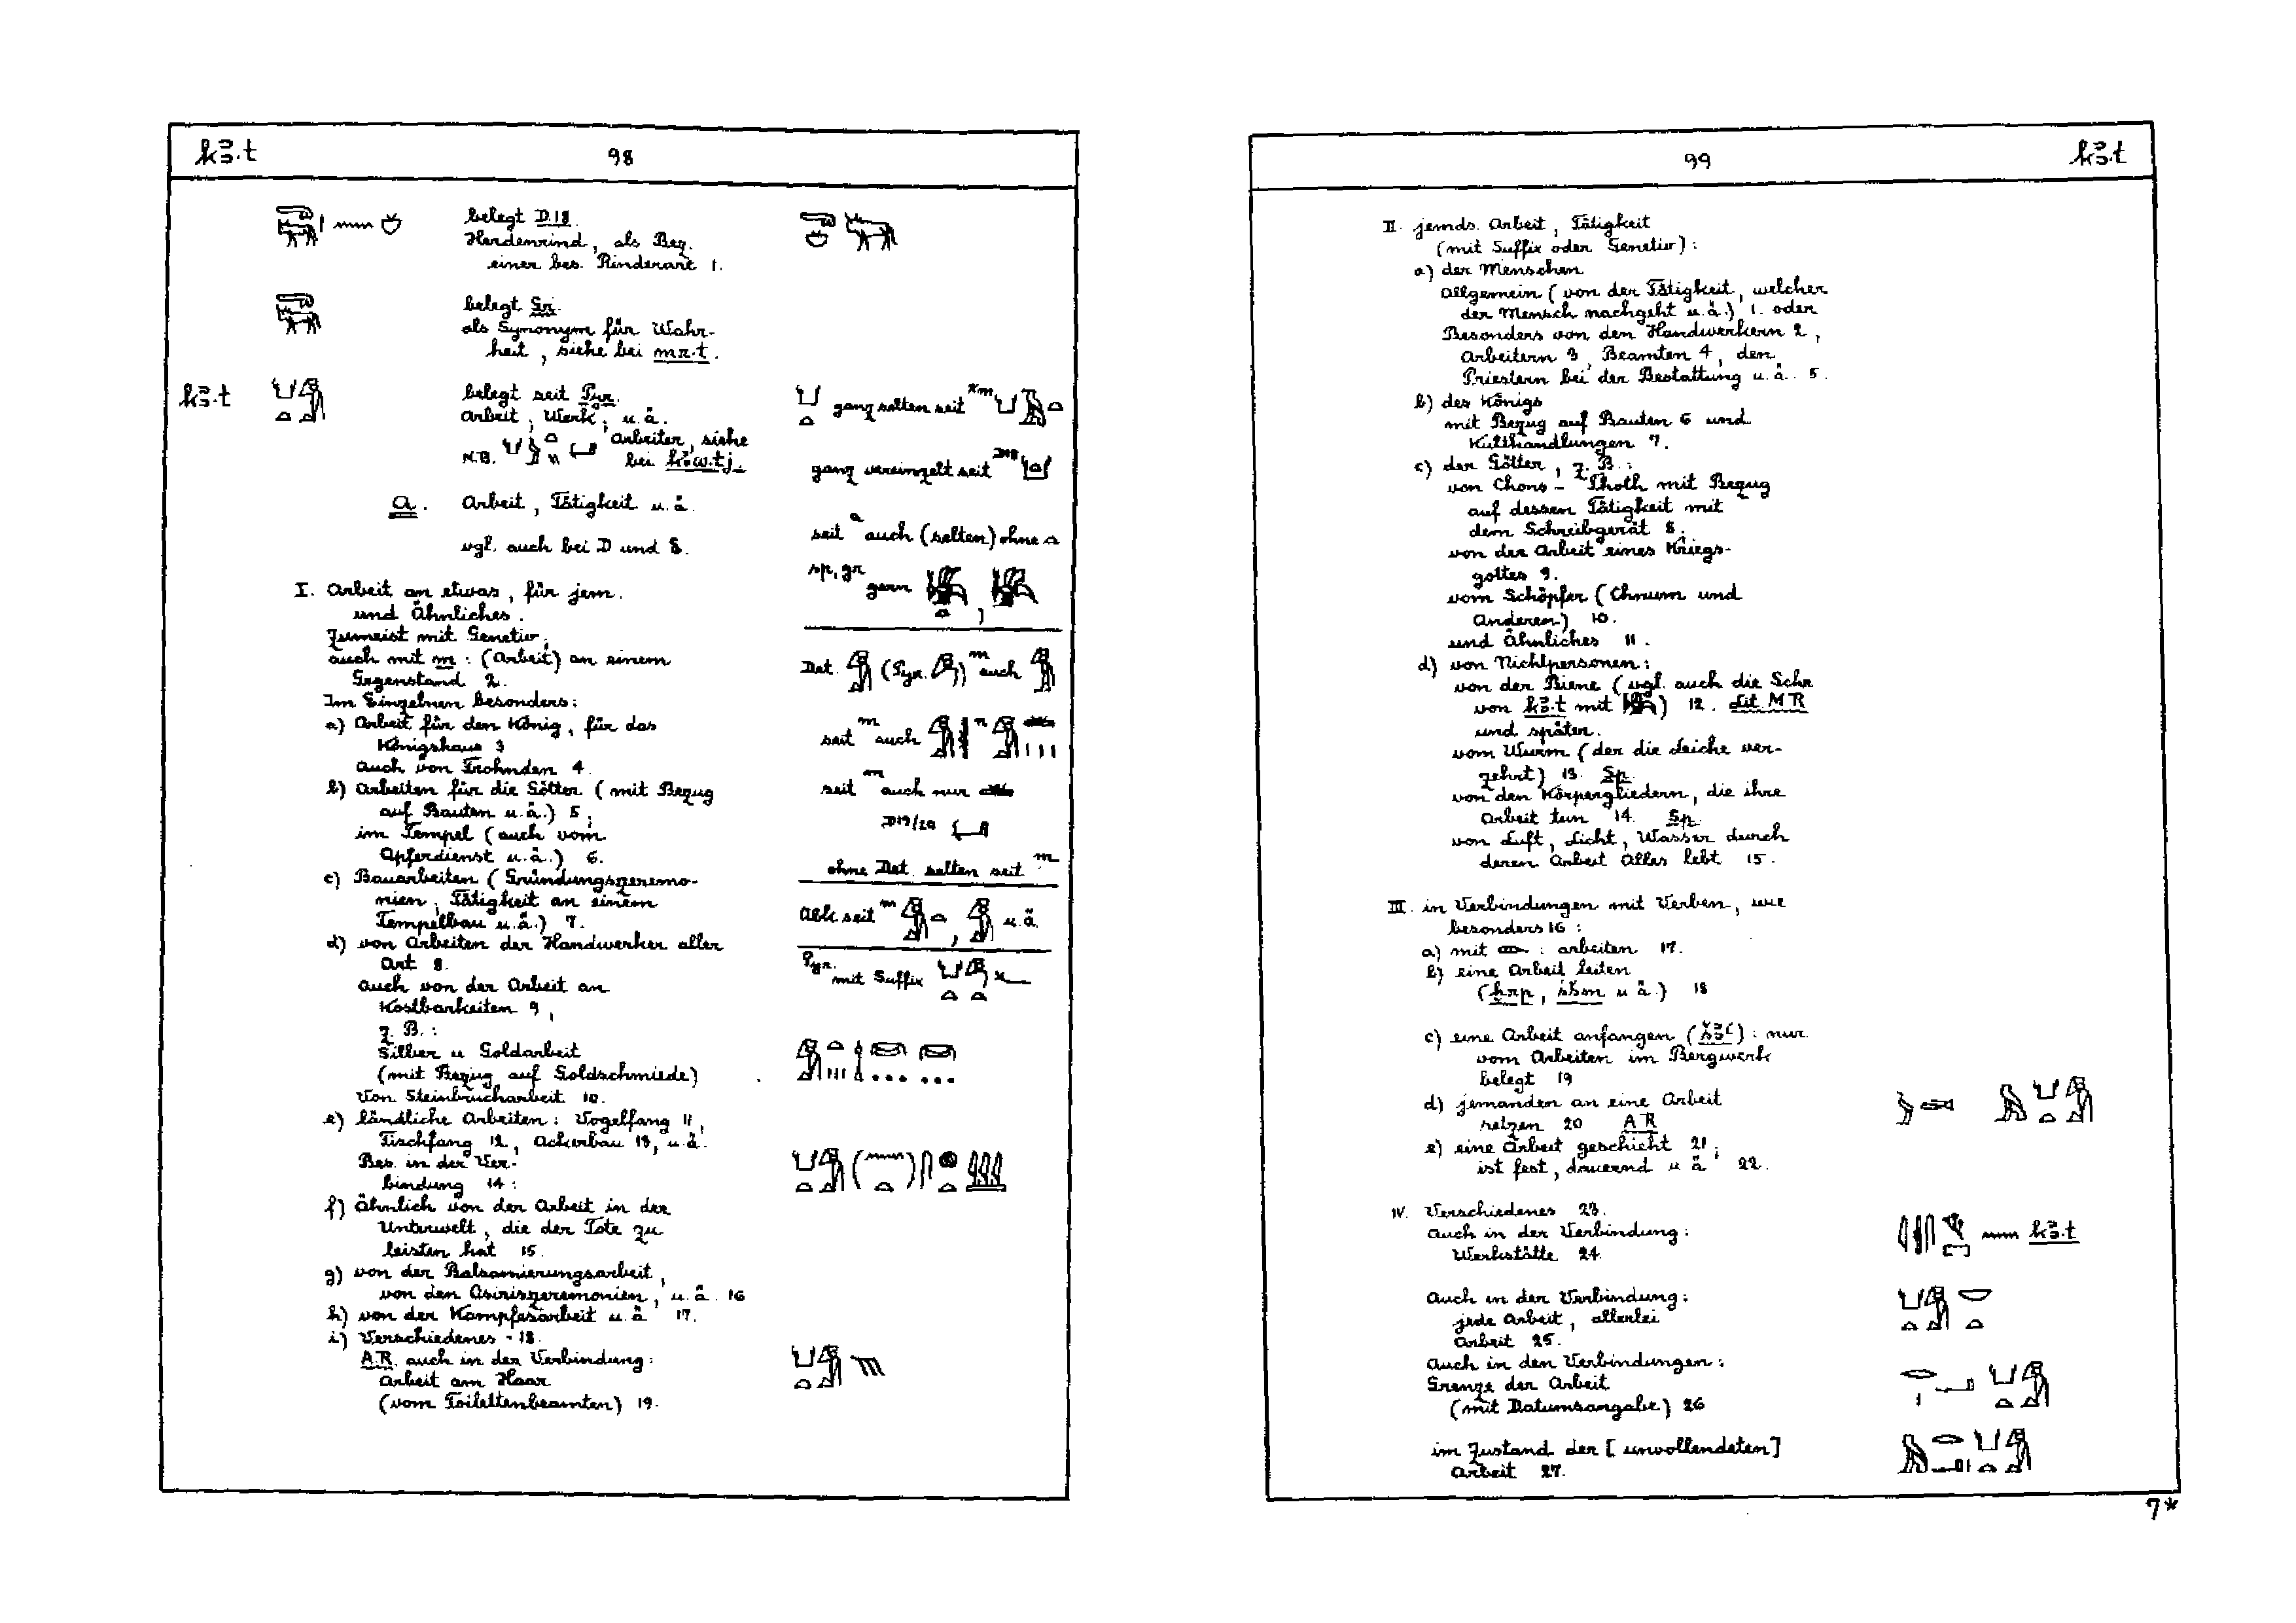 kꜣ.t
98
belegt D.18.
Herdenrind, als Bez.
einer bes. Rinderart 1.
belegt Gr.
als Synonym für Wahr-
heit, siehe bei mr.t.
kꜣ.t
belegt seit Pyr.
Arbeit, Werk, u.ä.
N.B. Arbeiter, siehe
bei kꜣw.tj.
A. Arbeit, Tätigkeit u.ä.
vgl. auch bei D und E.
I. Arbeit an etwas, für jem.
und Ähnliches.
Zumeist mit Genetiv;
auch mit m : (Arbeit) an einem
Gegenstand 2.
Im Einzelnen besonders:
a) Arbeit für den König, für das
Königshaus 3
Auch von Frohnden 4.
b) Arbeiten für die Götter (mit Bezug
auf Bauten u.ä.) 5;
im Tempel (auch vom
Opferdienst u.ä.) 6.
c) Bauarbeiten (Gründungszeremo-
nien, Tätigkeit an einem
Tempelbau u.ä.) 7.
d) von Arbeiten der Handwerker aller
Art 8.
Auch von der Arbeit an
Kostbarkeiten 9,
z. B.:
Silber u Goldarbeit
(mit Bezug auf Goldschmiede)
Von Steinbrucharbeit 10.
e) ländliche Arbeiten: Vogelfang 11,
Fischfang 12, Ackerbau 13, u.ä.
Bes. in der Ver-
bindung 14:
f) Ähnlich von der Arbeit in der
Unterwelt, die der Tote zu
leisten hat 15.
g) von der Balsamierungsarbeit,
von den Osiriszeremonien, u.ä. 16
h) von der Kampfesarbeit u.ä 17.
i) Verschiedenes 18.
A.R. auch in der Verbindung:
Arbeit am Haar
(vom Toilettenbeamten) 19.
ganz selten seit
ganz vereinzelt seit D18
seit a auch (selten) ohne
sp, gr
gern
Det. (Pyr. ) m auch
seit m auch n
seit m auch nur
D19/20
ohne Det. selten seit m
Abk. seit m , u.ä.
Pyr. mit Suffix
99
kꜣ.t
II. jemds. Arbeit, Tätigkeit
(mit Suffix oder Genetiv):
a) der Menschen
Allgemein (von der Tätigkeit, welcher
der Mensch nachgeht u.ä.) 1. oder
Besonders von den Handwerkern 2,
Arbeitern 3, Beamten 4, den
Priestern bei der Bestattung u.ä. 5.
b) des Königs
mit Bezug auf Bauten 6 und
Kulthandlungen 7.
c) der Götter, z. B.:
von Chons-Thoth mit Bezug
auf dessen Tätigkeit mit
dem Schreibgerät 8.
von der Arbeit eines Kriegs-
gottes 9.
vom Schöpfer (Chnum und
Anderen) 10.
und Ähnliches 11.
d) von Nichtpersonen:
von der Biene (vgl. auch die Schr
von kꜣ.t mit ) 12. Lit M R
und später.
vom Wurm (der die Leiche ver-
zehrt) 13. Sp.
von den Körpergliedern, die ihre
Arbeit tun 14. Sp.
von Luft, Licht, Wasser durch
deren Arbeit Alles lebt 15.
III. in Verbindungen mit Verben, wie
besonders 16 :
a) mit : arbeiten 17.
b) eine Arbeit leiten
(ḫrp, sšm u ä.) 18
c) eine Arbeit anfangen (šꜣꜥ) : nur
vom Arbeiten im Bergwerk
belegt 19
d) jemanden an eine Arbeit
setzen 20 A R
e) eine Arbeit geschieht 21,
ist fest, dauernd u ä 22.
IV. Verschiedenes 23.
Auch in der Verbindung:
Werkstätte 24.
kꜣ.t
Auch in der Verbindung:
jede Arbeit, allerlei
Arbeit 25.
Auch in den Verbindungen:
Grenze der Arbeit
(mit Datumsangabe) 26
im Zustand der [unvollendeten]
Arbeit 27.
7*